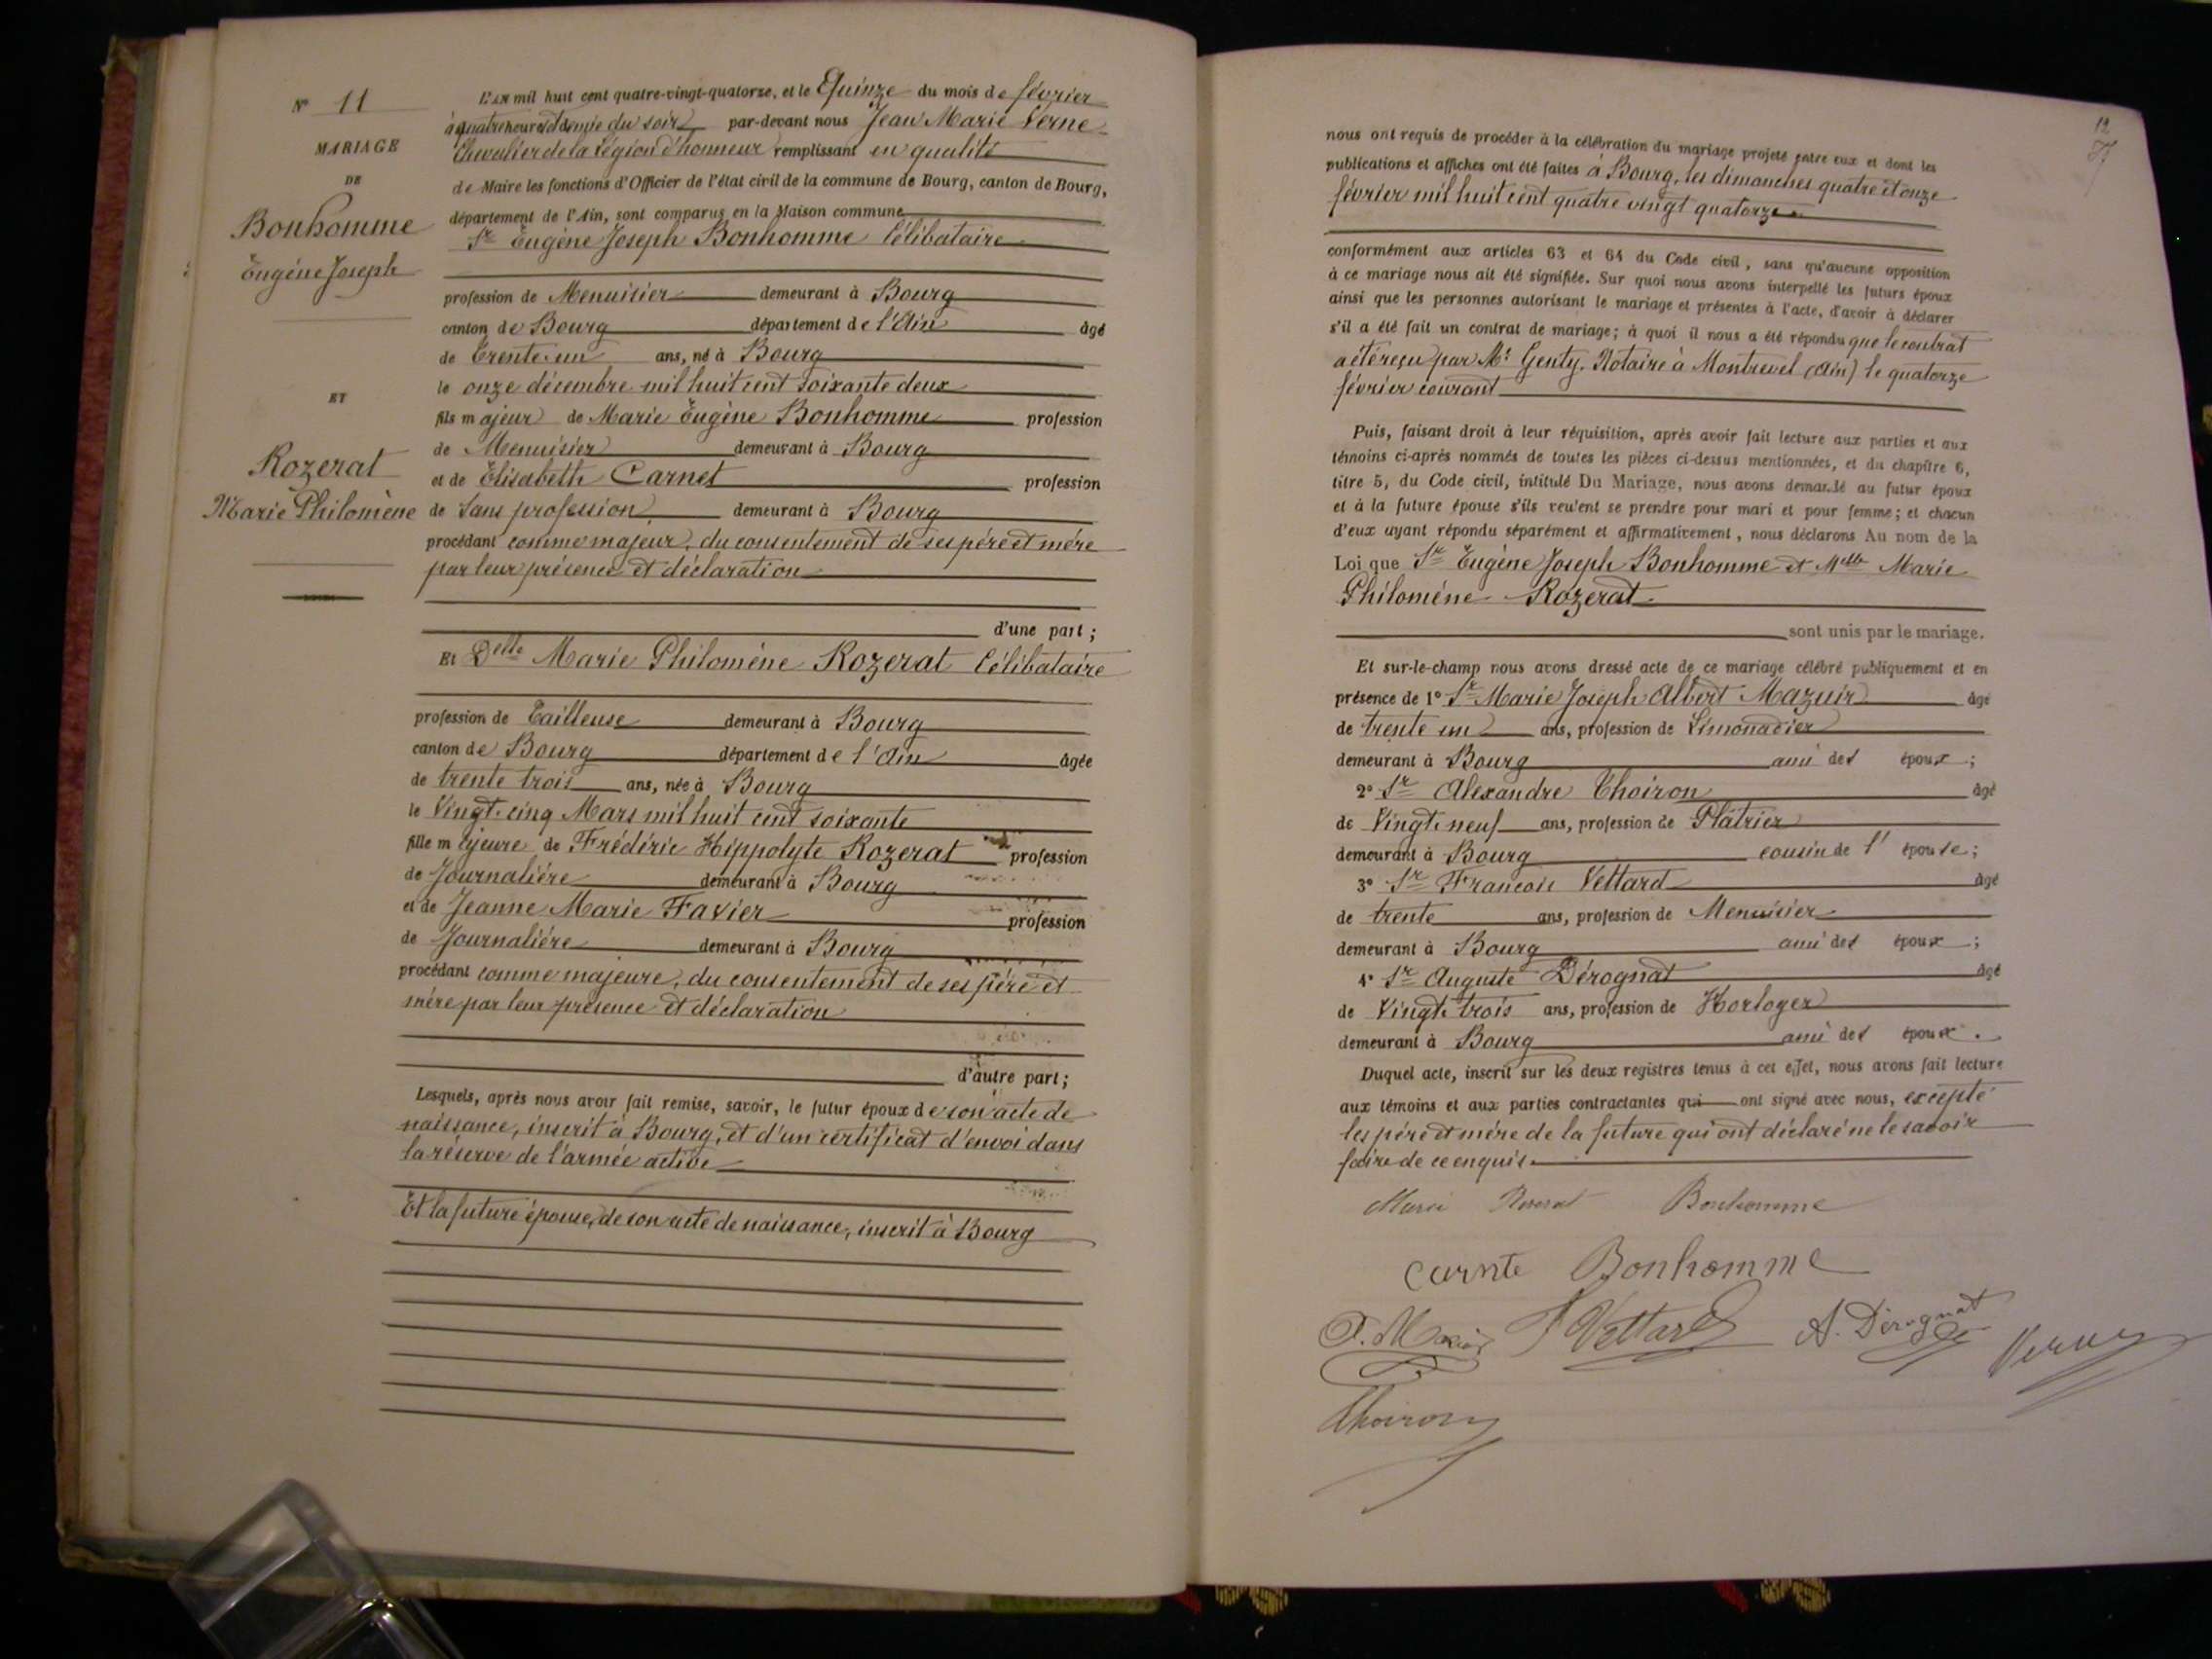 N° 11
MARIAGE
DE
Bonhomme
Eugène Joseph
ET
Rozerat
Marie Philomène
L'an mil huit cent quatre-vingt-quatorze, et le Quinze du mois de février
à quatre heures et demie du soir par-devant nous Jean Marie Verne
Chevalier de la Légion d'honneur remplissant en qualité
de Maire les fonctions d'Officier de l'état civil de la commune de Bourg, canton de Bourg,
département de l'Ain, sont comparus en la Maison commune
Sr Eugène Joseph Bonhomme Célibataire
profession de Menuisier demeurant à Bourg
canton de Bourg département de l'Ain âgé
de Trente-un ans, né à Bourg
le onze décembre mil huit cent soixante deux
fils majeur de Marie Eugène Bonhomme profession
de Menuisier demeurant à Bourg
et de Elisabeth Carnet profession
de Sans profession demeurant à Bourg
procédant comme majeur, du consentement de ses père et mère
par leur présence et déclaration
d'une part ;
Et Delle Marie Philomène Rozerat Célibataire
profession de Tailleuse demeurant à Bourg
canton de Bourg département de l'Ain âgée
de trente trois ans, née à Bourg
le Vingt-cinq Mars mil huit cent soixante
fille majeure de Frédéric Hippolyte Rozerat profession
de Journalière demeurant à Bourg
et de Jeanne Marie Favier profession
de Journalière demeurant à Bourg
procédant comme majeure, du consentement de ses père et
mère par leur présence et déclaration
d'autre part ;
Lesquels, après nous avoir fait remise, savoir, le futur époux de son acte de
naissance, inscrit à Bourg, et d'un certificat d'envoi dans
la réserve de l'armée active
Et la future épouse, de son acte de naissance, inscrit à Bourg
12
nous ont requis de procéder à la célébration du mariage projeté entre eux et dont les
publications et affiches ont été faites à Bourg, les dimanches quatre et onze
février mil huit cent quatre vingt quatorze
conformément aux articles 63 et 64 du Code civil, sans qu'aucune opposition
à ce mariage nous ait été signifiée. Sur quoi nous avons interpellé les futurs époux
ainsi que les personnes autorisant le mariage et présentes à l'acte, d'avoir à déclarer
s'il a été fait un contrat de mariage ; à quoi il nous a été répondu que le contrat
a été reçu par Me Genty, Notaire à Montrevel (Ain) le quatorze
février courant
Puis, faisant droit à leur réquisition, après avoir fait lecture aux parties et aux
témoins ci-après nommés de toutes les pièces ci-dessus mentionnées, et du chapitre 6,
titre 5, du Code civil, intitulé Du Mariage, nous avons demandé au futur époux
et à la future épouse s'ils veulent se prendre pour mari et pour femme ; et chacun
d'eux ayant répondu séparément et affirmativement, nous déclarons Au nom de la
Loi que Sr Eugène Joseph Bonhomme et Melle Marie
Philomène Rozerat
sont unis par le mariage.
Et sur-le-champ nous avons dressé acte de ce mariage célébré publiquement et en
présence de 1° Sr Marie Joseph Albert Mazuir âgé
de trente un ans, profession de Limonadier
demeurant à Bourg ami des époux ;
2° Sr Alexandre Thoiron âgé
de Vingt-neuf ans, profession de Plâtrier
demeurant à Bourg cousin de l'épouse ;
3° Sr François Vettard âgé
de trente ans, profession de Menuisier
demeurant à Bourg ami des époux ;
4° Sr Auguste Dérognat âgé
de Vingt-trois ans, profession de Horloger
demeurant à Bourg ami des époux.
Duquel acte, inscrit sur les deux registres tenus à cet effet, nous avons fait lecture
aux témoins et aux parties contractantes qui ont signé avec nous, excepté
les père et mère de la future qui ont déclaré ne le savoir
faire de ce enquis.
Marie Rozerat Bonhomme
Carnte Bonhomme
Vettard A. Dérognat Verne
Thoiron